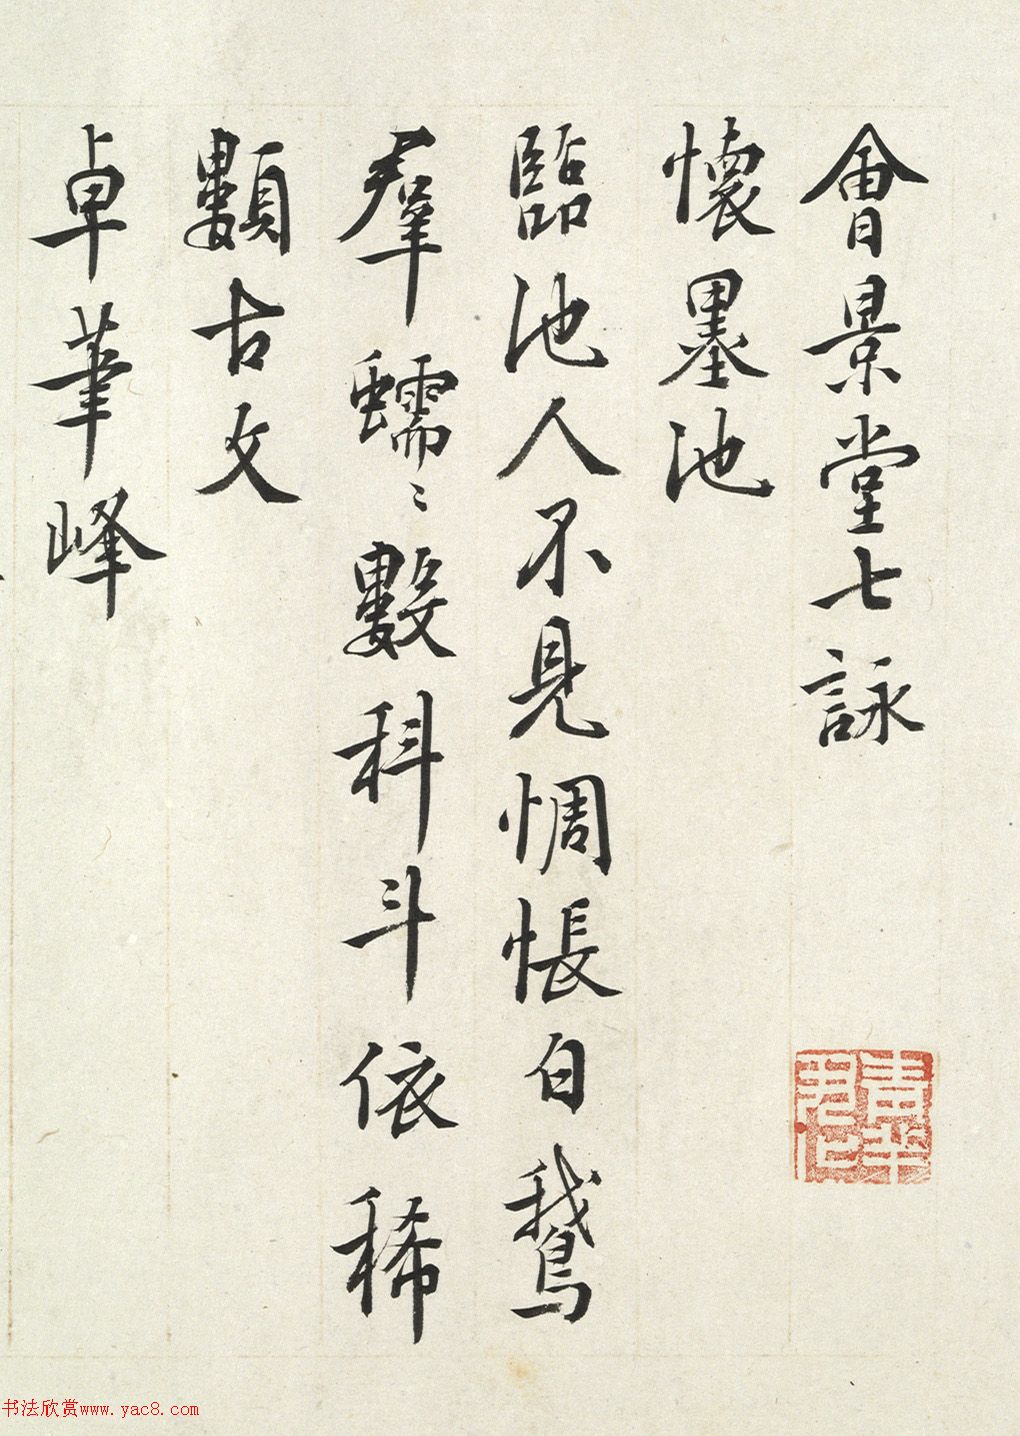 會景堂七詠
懷墨池
臨池人不見惆悵白鵝
羣蠕〻數科斗依稀
類古文
卓筆峰
书法欣赏www.yac8.com